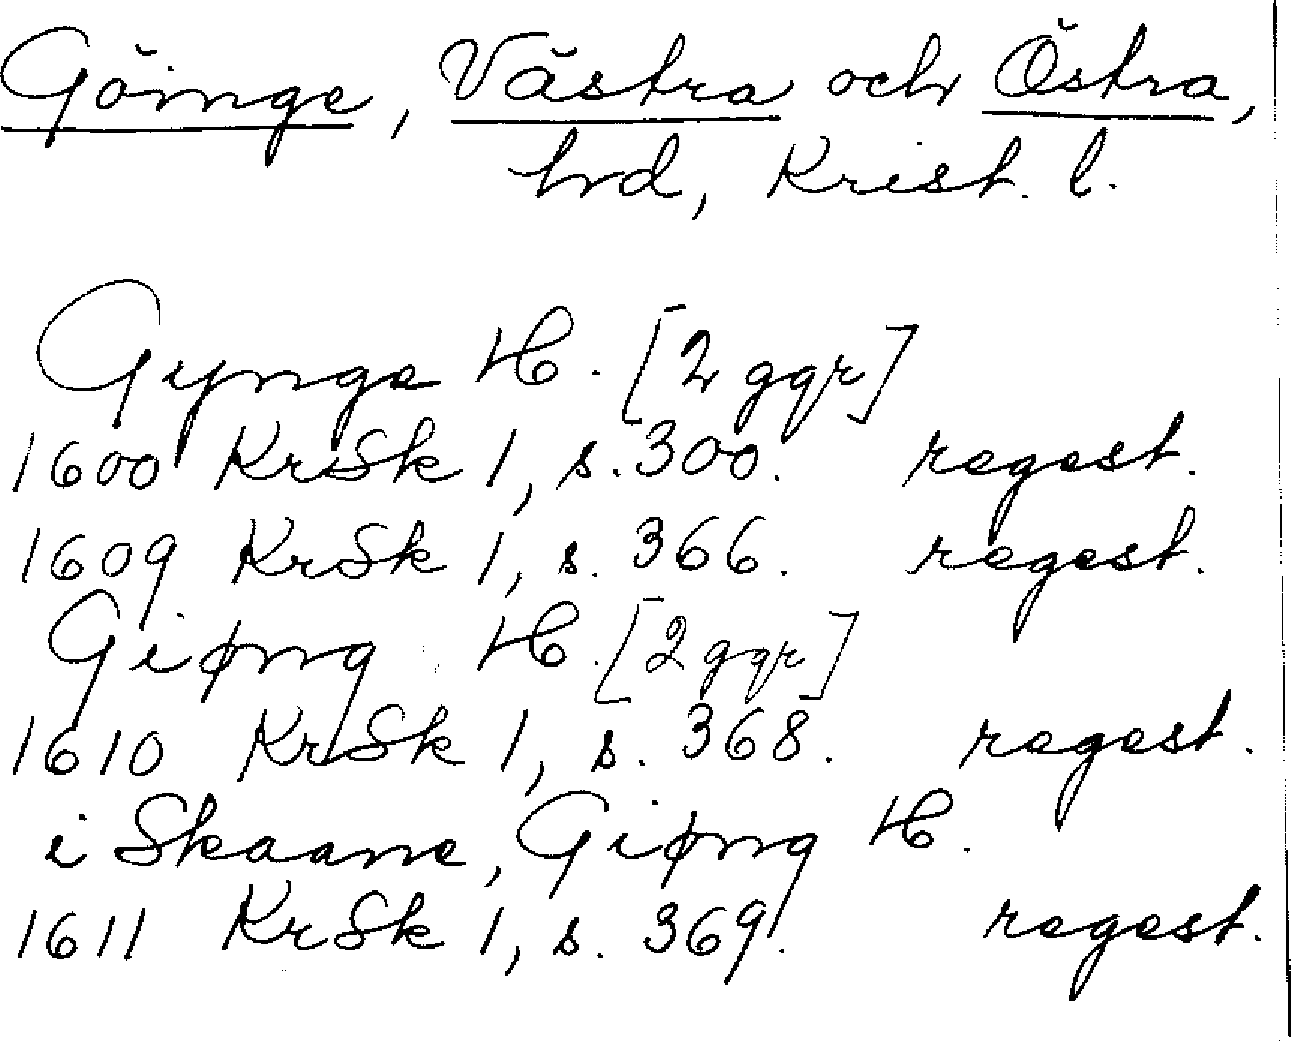 Göinge, Västra och Östra,
hrd, Krist. l.
Gynge H. [2 ggr]
1600 KrSk 1, s. 300. regest.
1609 KrSk 1, s. 366. regest.
Giøng H. [2 ggr]
1610 KrSk 1, s. 368. regest.
i Skaane, Giøng H.
1611 KrSk 1, s. 369. regest.